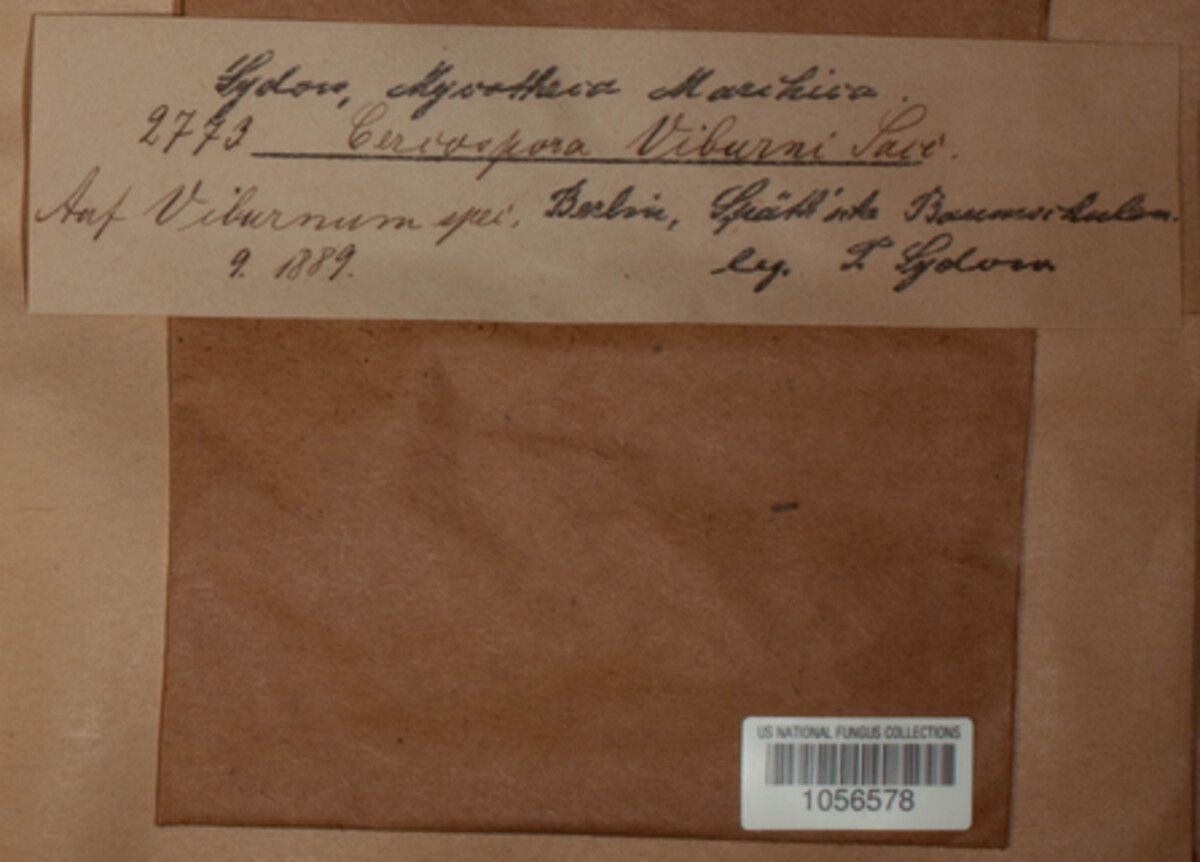 Sydow, Mycotheca Marchica.
2773 Cercospora Viburni Sacc.
Auf Viburnum spec. Berlin, Späth'sche Baumschulen.
9. 1889. leg. P Sydow
US NATIONAL FUNGUS COLLECTIONS
1056578